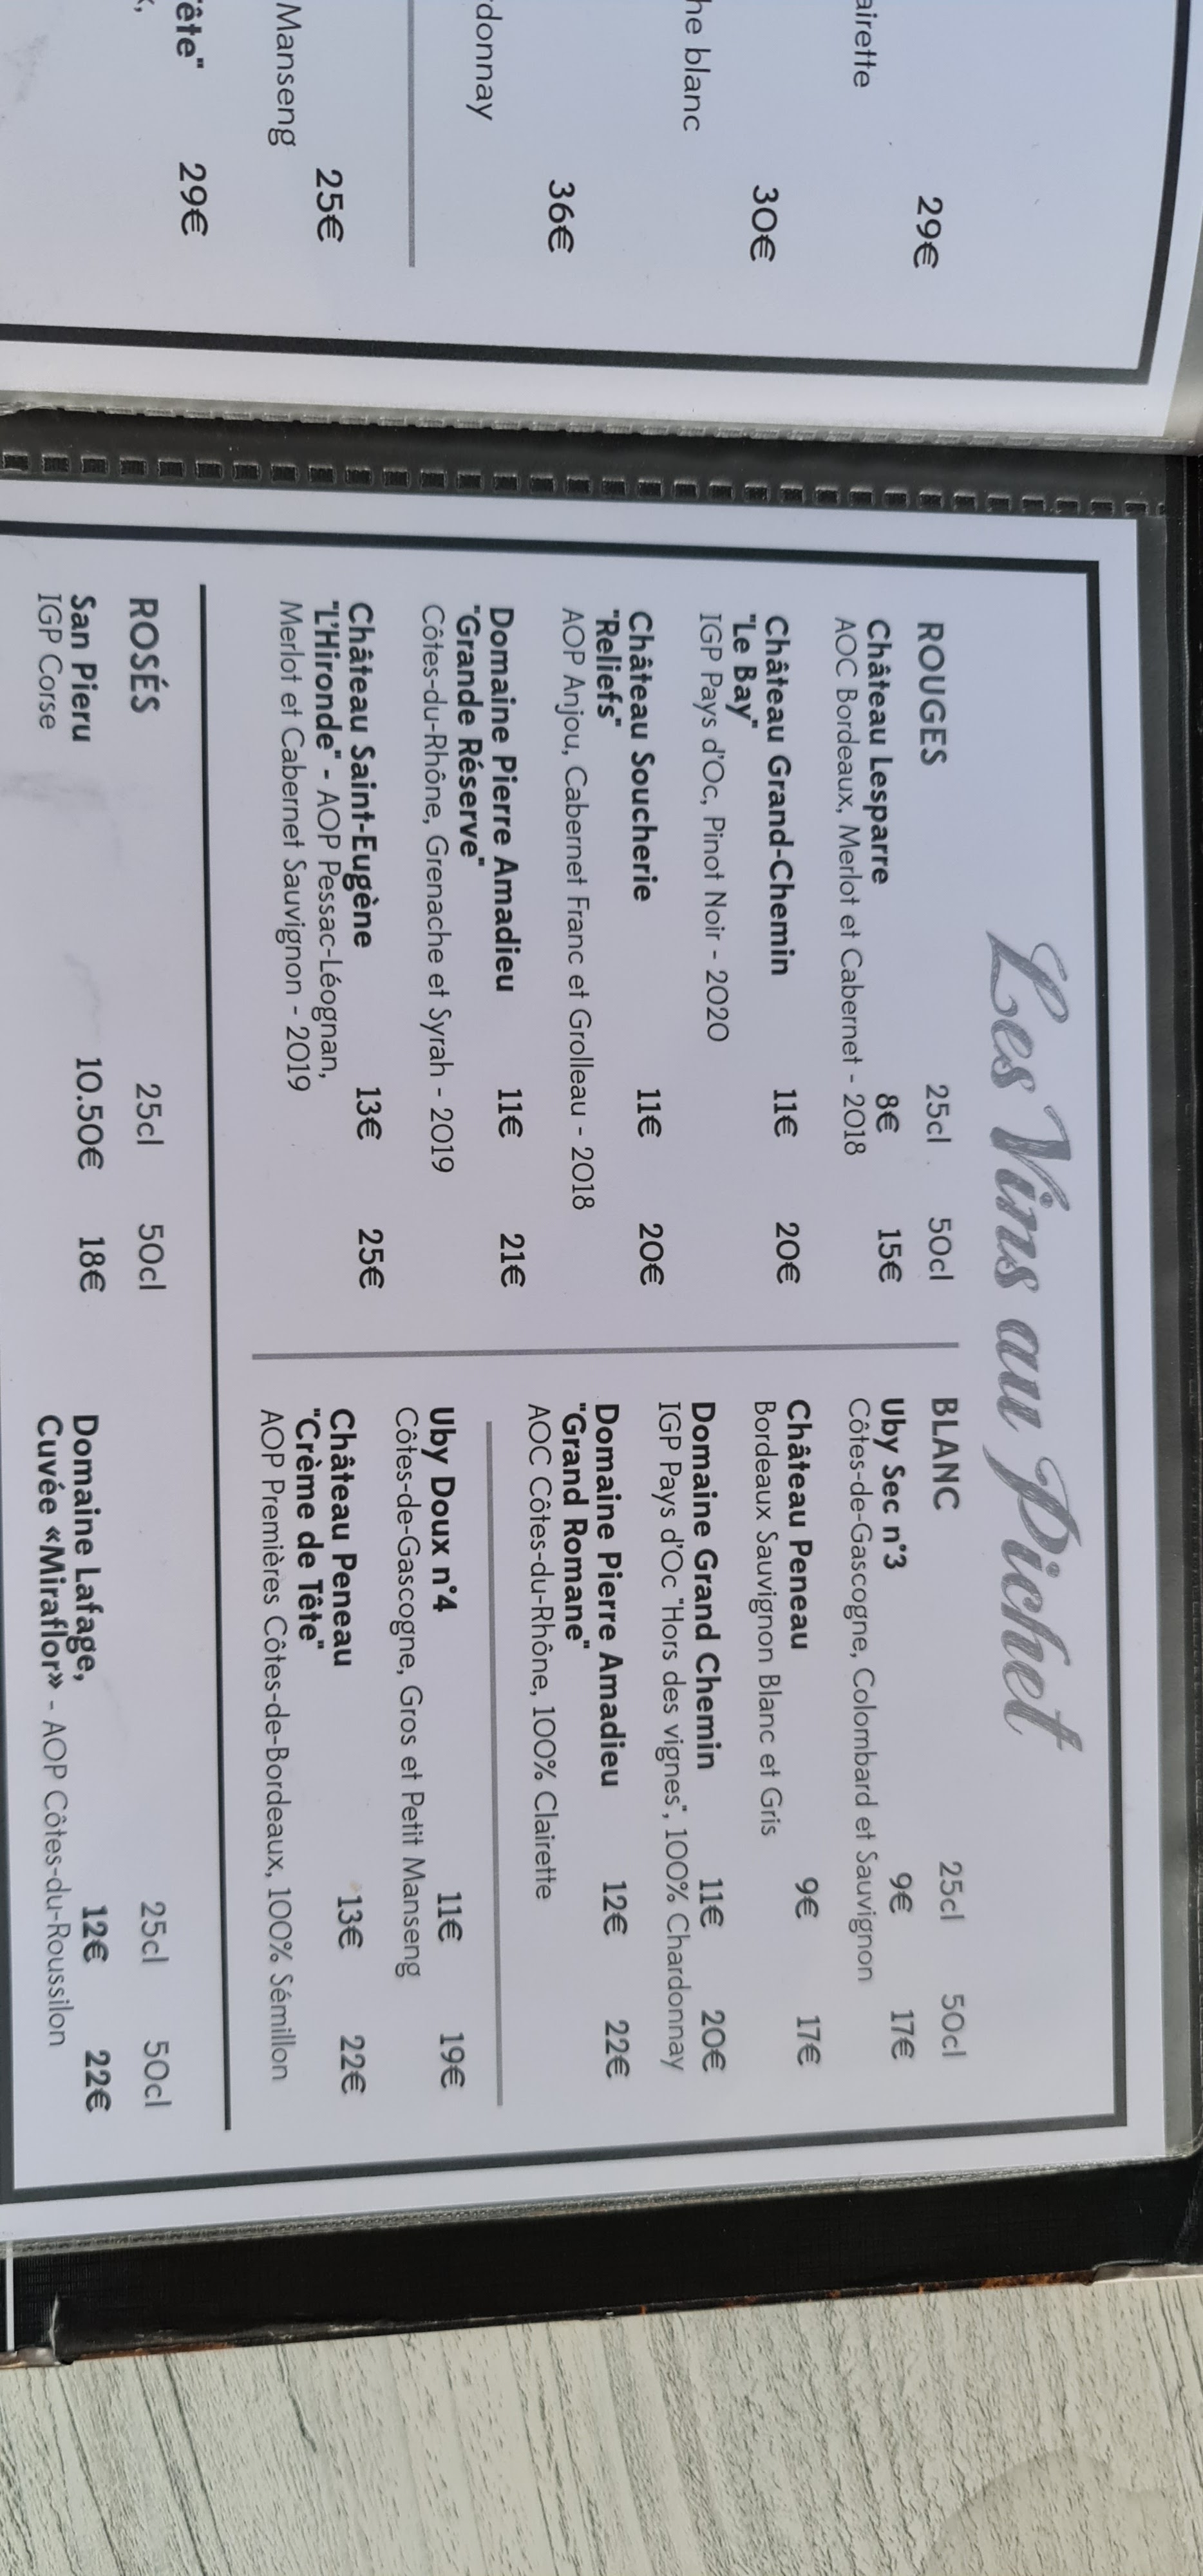 airette
29€
he blanc
30€
donnay
36€
Manseng
25€
ête"
29€
Les Vins au Pichet
ROUGES 25cl 50cl
Château Lesparre 8€ 15€
AOC Bordeaux, Merlot et Cabernet - 2018
Château Grand-Chemin 11€ 20€
"Le Bay"
IGP Pays d'Oc, Pinot Noir - 2020
Château Soucherie 11€ 20€
"Reliefs"
AOP Anjou, Cabernet Franc et Grolleau - 2018
Domaine Pierre Amadieu 11€ 21€
"Grande Réserve"
Côtes-du-Rhône, Grenache et Syrah - 2019
Château Saint-Eugène 13€ 25€
"L'Hironde" - AOP Pessac-Léognan,
Merlot et Cabernet Sauvignon - 2019
BLANC 25cl 50cl
Uby Sec n°3 9€ 17€
Côtes-de-Gascogne, Colombard et Sauvignon
Château Peneau 9€ 17€
Bordeaux Sauvignon Blanc et Gris
Domaine Grand Chemin 11€ 20€
IGP Pays d'Oc "Hors des vignes", 100% Chardonnay
Domaine Pierre Amadieu 12€ 22€
"Grand Romane"
AOC Côtes-du-Rhône, 100% Clairette
Uby Doux n°4 11€ 19€
Côtes-de-Gascogne, Gros et Petit Manseng
Château Peneau 13€ 22€
"Crème de Tête"
AOP Premières Côtes-de-Bordeaux, 100% Sémillon
ROSÉS 25cl 50cl
San Pieru 10.50€ 18€
IGP Corse
25cl 50cl
Domaine Lafage, 12€ 22€
Cuvée «Miraflor» - AOP Côtes-du-Roussilon